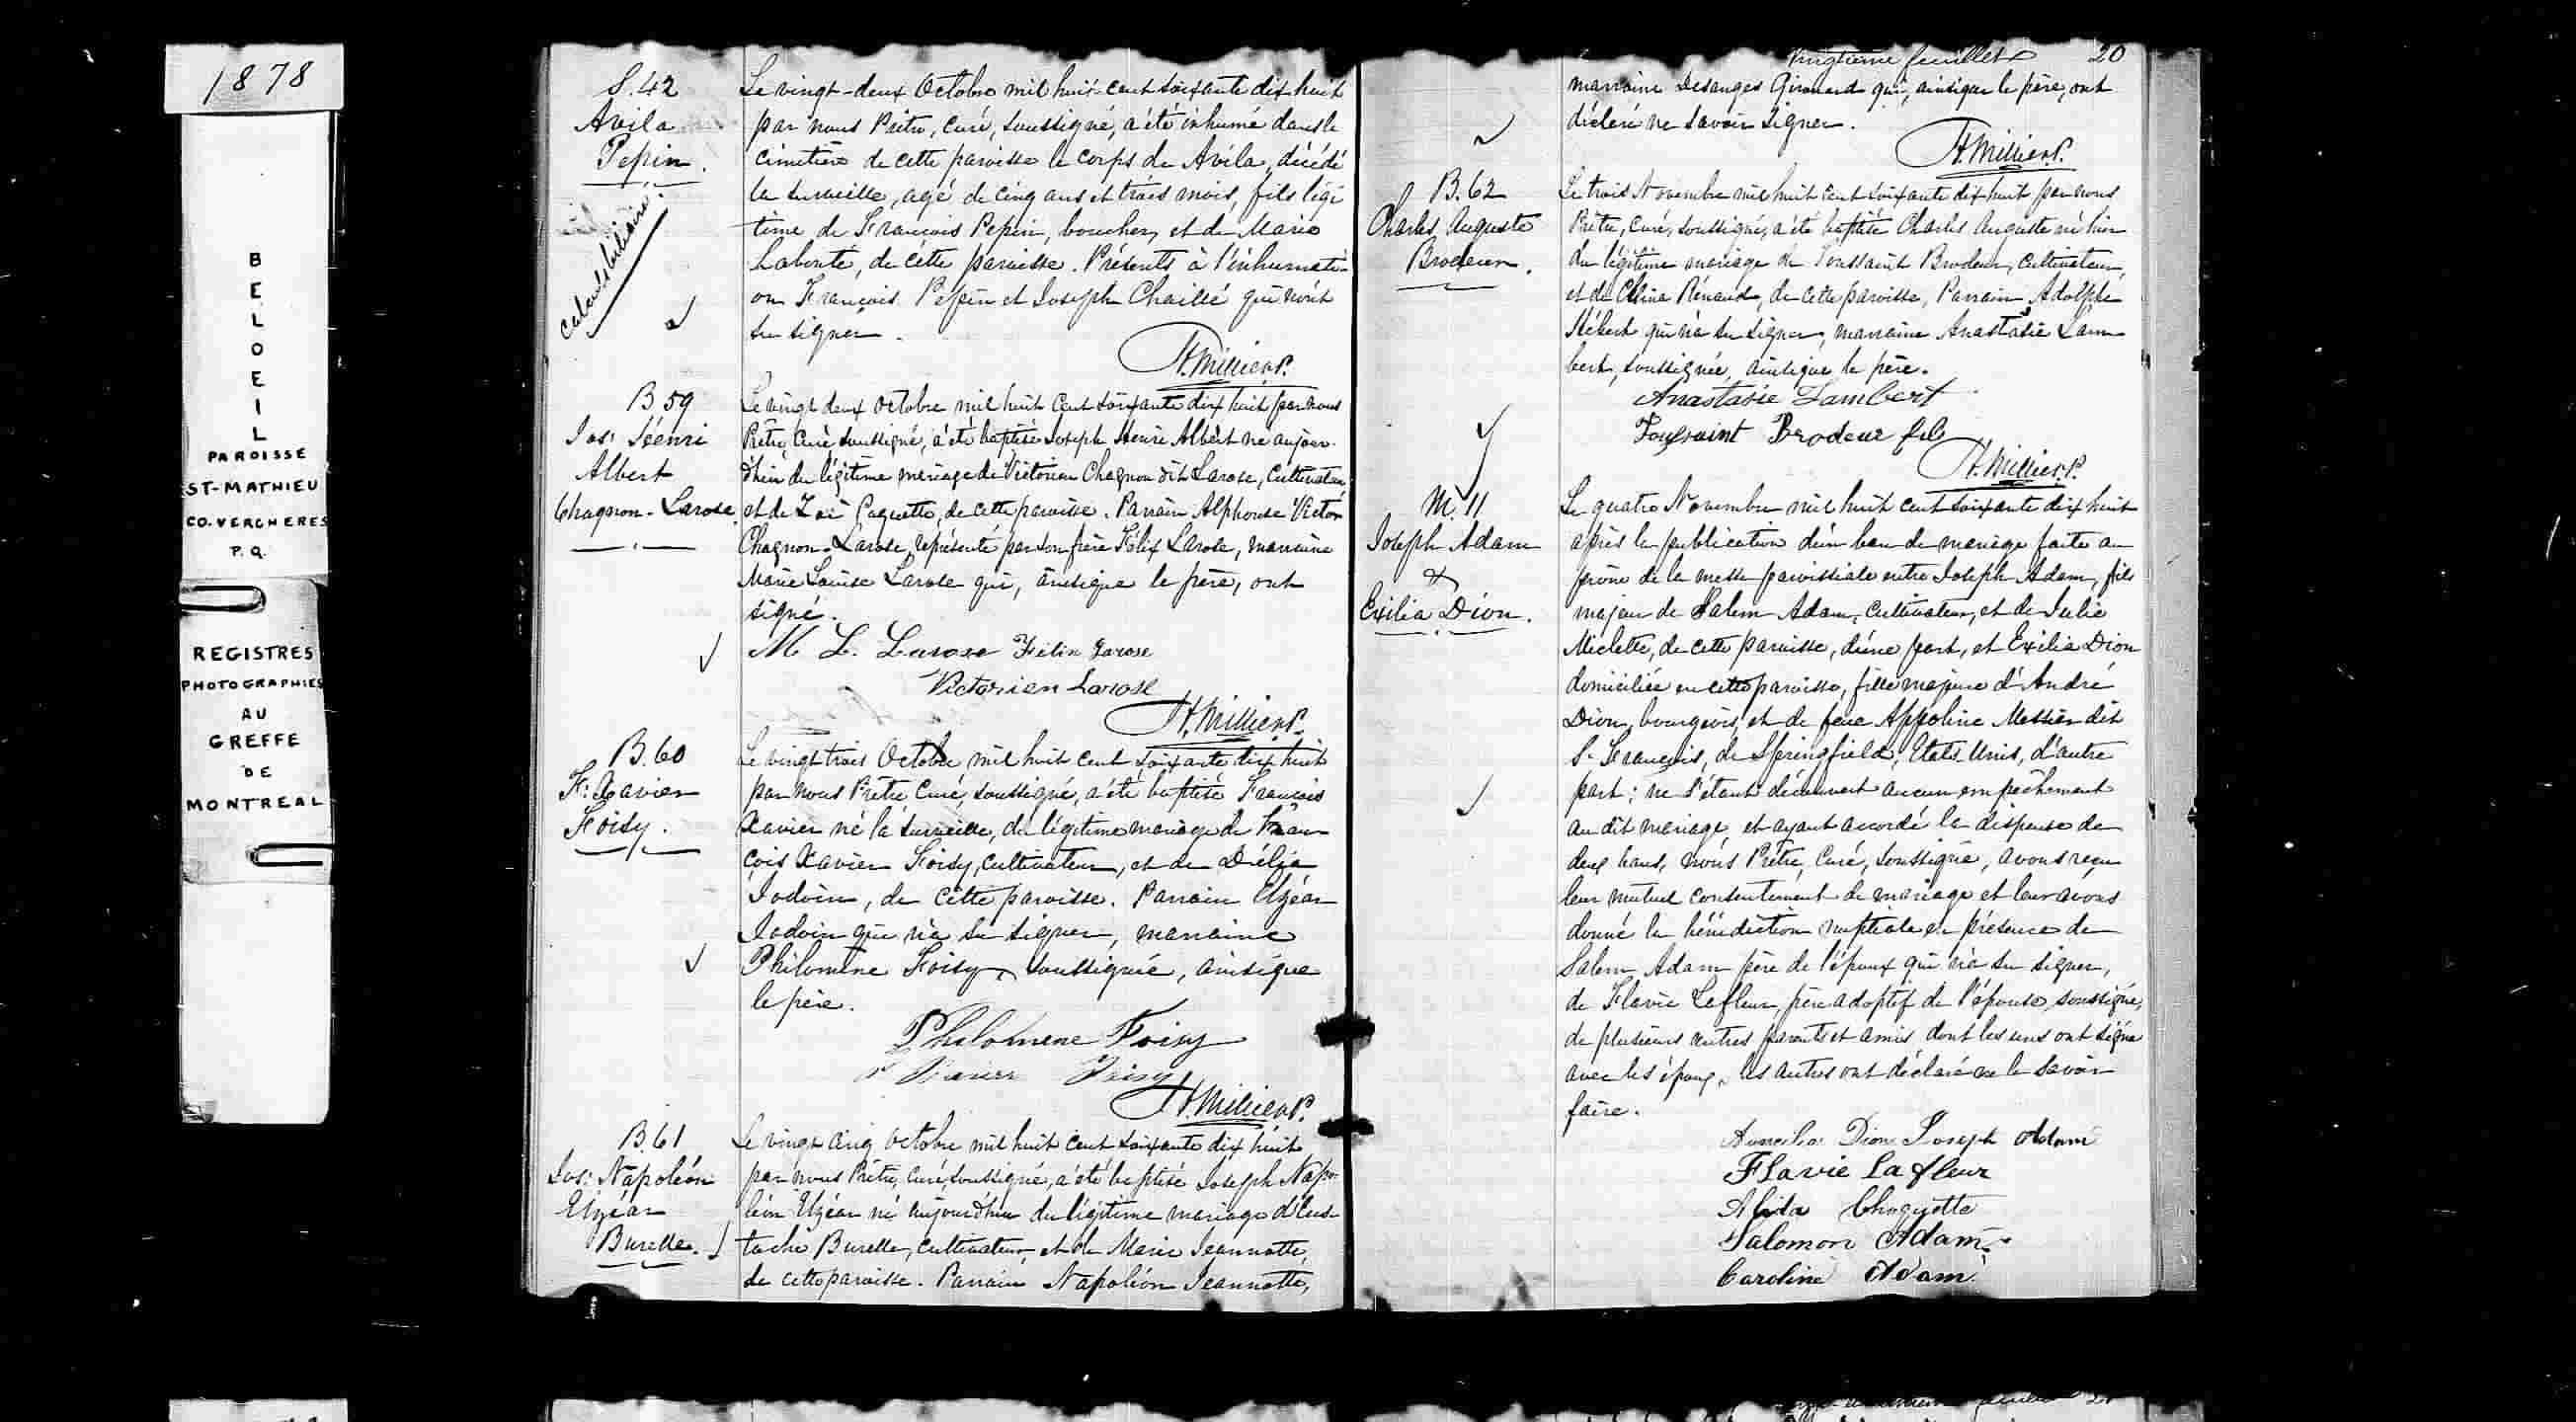 1878
BELOEIL
PAROISSE
ST-MATHIEU
CO. VERCHERES
P.Q.
REGISTRES
PHOTOGRAPHIES
AU
GREFFE
DE
MONTREAL
S. 42
Avila
Pepin.
Le vingt-deux Octobre mil huit cent soixante dix huit
par nous Prêtre, Curé, soussigné, a été inhumé dans le
cimetière de cette paroisse le corps de Avila, décédé
la surveille, agé de cinq ans et trois mois, fils légi
time de François Pepin, boucher, et de Marie
Labonté, de cette paroisse. Présents à l'inhumati-
on François Pepin et Joseph Chaillé qui n'ont
su signer.
A. Millier P.
B 59
Jos: Henri
Albert
Chagnon-Larose.
Le vingt deux Octobre mil huit cent soixante dix huit par nous
Prêtre, Curé soussigné, a été baptisé Joseph Henri Albert né aujour-
d'hui du légitime mariage de Victorien Chagnon dit Larose, Cultivateur
et de Zoé Paquette, de cette paroisse. Parrain Alphonse Victor
Chagnon-Larose, représenté par son frère Félix Larose, marraine
Marie Louise Larose qui, ainsique le père, ont
signé.
M L. Larose Félix Larose
Victorien Larose
A. Millier P.
B. 60
F: Xavier
Foisy.
Le vingt trois Octobre mil huit cent soixante dix huit
par nous Prêtre Curé, soussigné, a été baptisé François
Xavier né la surveille, du légitime mariage de Fran
çois Xavier Foisy, cultivateur, et de Délia
Jodoin, de cette paroisse. Parrain Elzéar
Jodoin qui n'a su signer, marraine
Philomène Foisy, soussignée, ainsique
le père.
Philomene Foisy
Xavier Foisy
A. Millier P.
B. 61
Jos: Napoléon
Elzéar
Burelle.
Le vingt cinq Octobre mil huit cent soixante dix huit
par nous Prêtre, Curé, soussigné, a été baptisé Joseph Napo-
léon Elzéar né aujourd'hui du légitime mariage d'Eus-
tache Burelle, cultivateur, et de Marie Jeannotte,
de cette paroisse. Parrain Napoléon Jeannotte,
vingtième feuillet 20
marraine Desanges Girouard qui, ainsique le père, ont
déclaré ne savoir signer.
A. Millier P.
B. 62
Charles Auguste
Brodeur.
Le trois Novembre mil huit cent soixante dix huit par nous
Prêtre, Curé, soussigné, a été baptisé Charles Auguste né hier
du légitime mariage de Toussaint Brodeur, Cultivateur,
et de Célina Rénaud, de cette paroisse, Parrain Adolphe
Hébert qui n'a su signer, marraine Anastasie Lam
bert, soussignée, ainsique le père.
Anastasie Lambert
Toussaint Brodeur fils
A. Millier P.
M. 11
Joseph Adam
&
Exilia Dion.
Le quatre Novembre mil huit cent soixante dix huit
après la publication d'un ban de mariage faite au
prône de la messe paroissiale entre Joseph Adam, fils
majeur de Salem Adam, Cultivateur, et de Julie
Miclette, de cette paroisse, d'une part, et Exilia Dion
domiciliée en cette paroisse, fille majeure d'André
Dion, bourgeois, et de feue Appoline Messier dit
St. François, de Springfield, Etats-Unis, d'autre
part; ne s'étant découvert aucun empêchement
au dit mariage, et ayant accordé la dispense de
deux bans, nous Prêtre, Curé, soussigné, avons reçu
leur mutuel consentement de mariage et leur avons
donné la bénédiction nuptiale en présence de
Salem Adam père de l'époux qui n'a su signer,
de Flavie Lafleur, père adoptif de l'épouse soussigné,
de plusieurs autres parents et amis dont les uns ont signé
avec les époux, les autres ont déclaré ne le savoir
faire.
Dion Joseph Adam
Flavie Lafleur
Alida Choquette
Salomon Adam
Caroline Adam